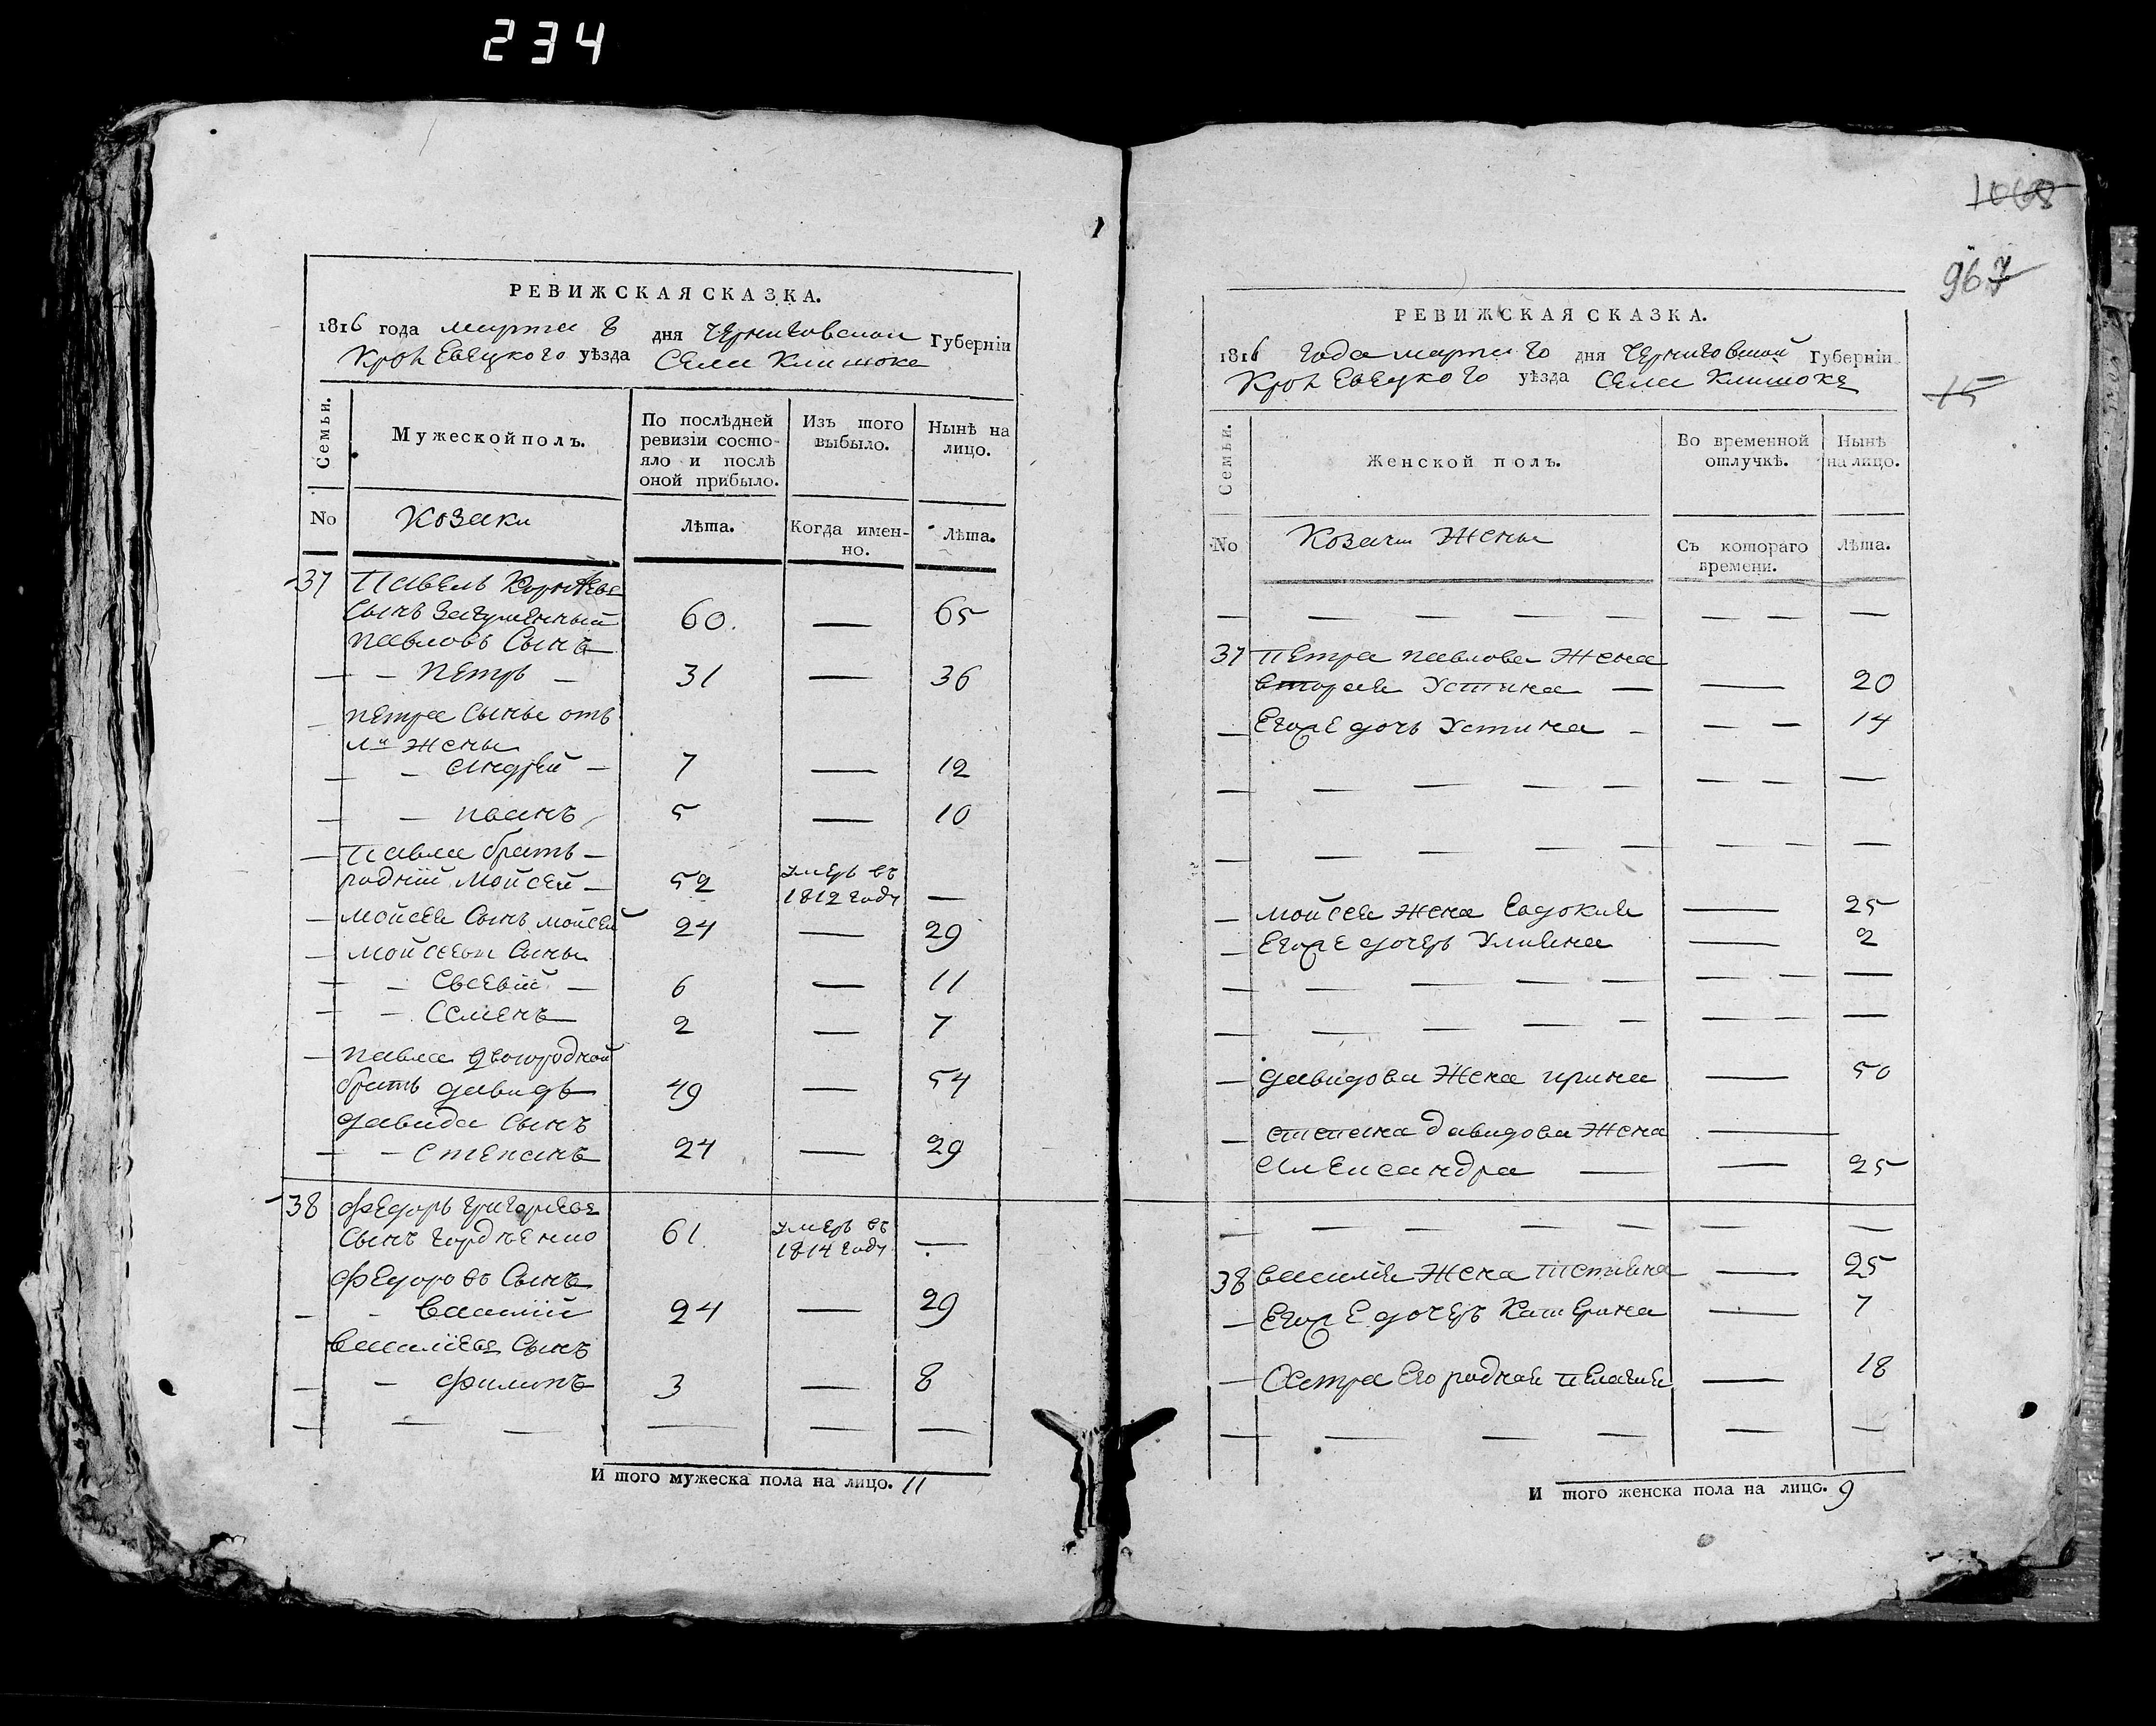 234
РЕВИЖСКАЯ СКАЗКА.
1816 года марта дня Черниговской Губерніи
Кролевецкого уѣзда Села Клишокъ
Семьи.
Мужеской полъ.
По послѣдней ревизіи состояло и послѣ оной прибыло.
Изъ того выбыло.
Нынѣ на лицо.
No
Козаки
Лѣта.
Когда именно.
Лѣта.
37 Павелъ
сынъ 60. — 65
павловъ Сынъ
— — Петръ — 31 — 36
— петра Сыны отъ
жены
— — Андрей — 7 — 12
— — иванъ 5 — 10
— Павла братъ —
родній Мойсей — 52 умеръ въ 1812 году —
— Мойсея Сынъ Мойсей 24 — 29
— Мойсеевы Сыны
— — — 6 — 11
— — Семенъ 2 — 7
— павла двоюродной
братъ давидъ 49 — 54
давида Сынъ
— — Степанъ 24 — 29
38 Федоръ григорьевъ
Сынъ 61. умеръ въ 1814 году —
Федоровъ Сынъ
— — Василій 24 — 29
Василіевъ Сынъ
— — Филипъ 3 — 8
— — — — — —
И того мужеска пола на лицо. 11
1068
967
15
РЕВИЖСКАЯ СКАЗКА.
1816 года марта дня Черниговской Губерніи
Кролевецкого уѣзда Села Клишокъ
Семьи.
Женской полъ.
Во временной отлучкѣ.
Нынѣ на лицо.
No
Козачи Жены
Съ котораго времени.
Лѣта.
— — — — — — — —
37 Петра павлова Жена
вторая Устина — — 20
— Его дочь Устина — — — 14
— — — — — — — —
— — — — — — — —
— Мойсея Жена Евдокия — 25
— Его дочеръ Улияна — 2
— — — — — — — —
— — — — — — — —
— давидова Жена ирина — 50
— степана давидова Жена —
Александра — — 25
— — — — — — —
38 василия Жена Татияна — 25
— Его дочеръ Катерина — 7
— Сестра Его родная пелагия — 18
— — — — — —
И того женска пола на лицо. 9